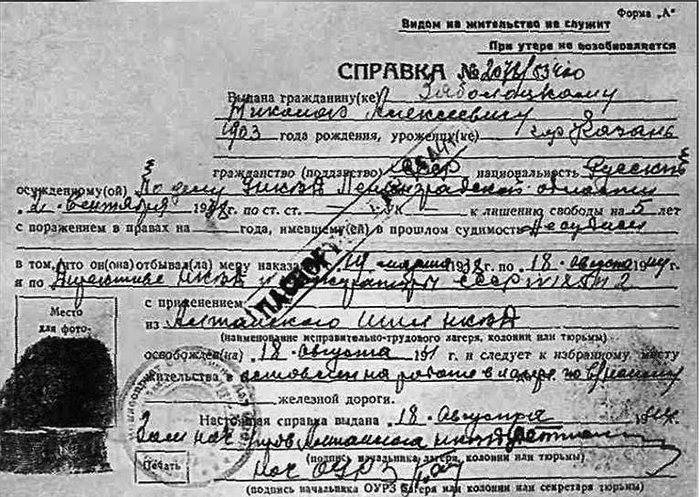 Форма „А"
Видом на жительство не служит
При утере не возобновляется
СПРАВКА №
Выдана гражданину(ке) Заболоцкому
Николаю Алексеевичу
1903 года рождения, уроженцу(ке) гор Казань
гражданство (подданство) СССР национальность Русский
осужденному(ой) По делу НКВД Ленинградской области
2 Сентября 1938г. по ст. ст. УК к лишению свободы на 5 лет
с поражением в правах на года, имевшему(ей) в прошлом судимость Несудим
в том, что он(она) отбывал(ла) меру наказ 19 марта 1938г. по 18 Августа 1944г
и по Директиве НКВД и Прокуратуры СССР № 185
Место
для фото-
с применением
из Алтайского НКВД
(наименование исправительно-трудового лагеря, колонии или тюрьмы)
освобожден(на) 18 Августа 191 г. и следует к избранному месту
жительства в оставлен на работе в лагере по в/найму
железной дороги.
Настоящая справка выдана 18 Августа 1944г.
Зам нач Алтайского НКВД
(подпись начальника лагеря, колонии или тюрьмы)
Печать
Нач ОУРЗ
(подпись начальника ОУРЗ лагеря или колонии или секретаря тюрьмы)